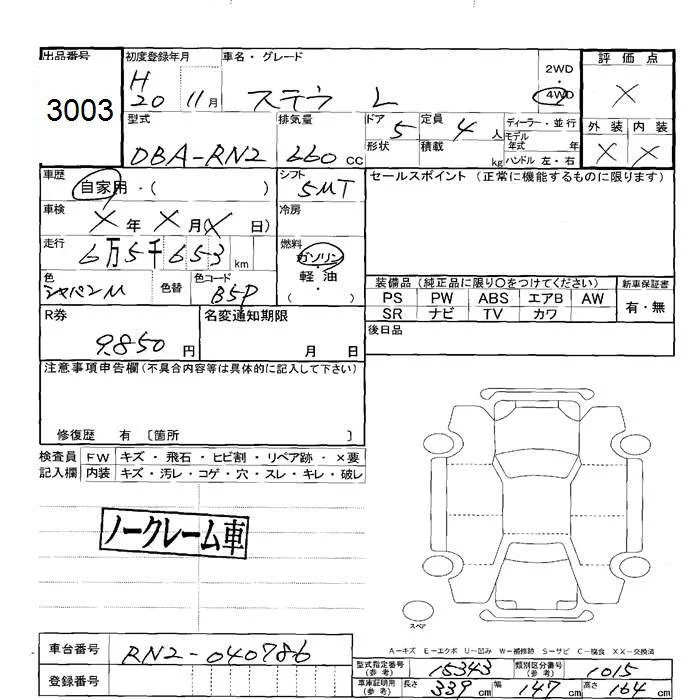 出品番号
3003
初度登録年月
H
20 11月
車名・グレード
ステラ L
2WD
・
4WD
評価点
×
外装 内装
× ×
型式
DBA-RN2
排気量
660 cc
ドア
5
形状
定員
4 人
積載
kg
ディーラー・並行
モデル
年式 年
ハンドル 左・右
車歴
自家用・( )
シフト
5MT
セールスポイント (正常に機能するものに限ります)
車検
× 年 × 月 × 日)
冷房
走行
6万5千653 km
燃料
ガソリン
軽・油
( )
色
シャパンM
色替
色コード
B5P
装備品 (純正品に限り〇をつけてください)
PS PW ABS エアB AW
SR ナビ TV カワ
新車保証書
有・無
R券
9,850 円
名変通知期限
月 日
後日品
注意事項申告欄(不具合内容等は具体的に記入して下さい)
修復歴 有 〔箇所 〕
検査員 FW キズ・飛石・ヒビ割・リペア跡・×要
記入欄 内装 キズ・汚レ・コゲ・穴・スレ・キレ・破レ
ノークレーム車
スペア
A-キズ E-エクボ U-凹み W-補修跡 S-サビ C-腐食 XX-交換済
車台番号
RN2-040786
登録番号
型式指定番号
(参考)
15343
類別区分番号
(参考)
1015
車庫証明用
(参考)
長さ 339 cm 幅 147 cm 高さ 164 cm